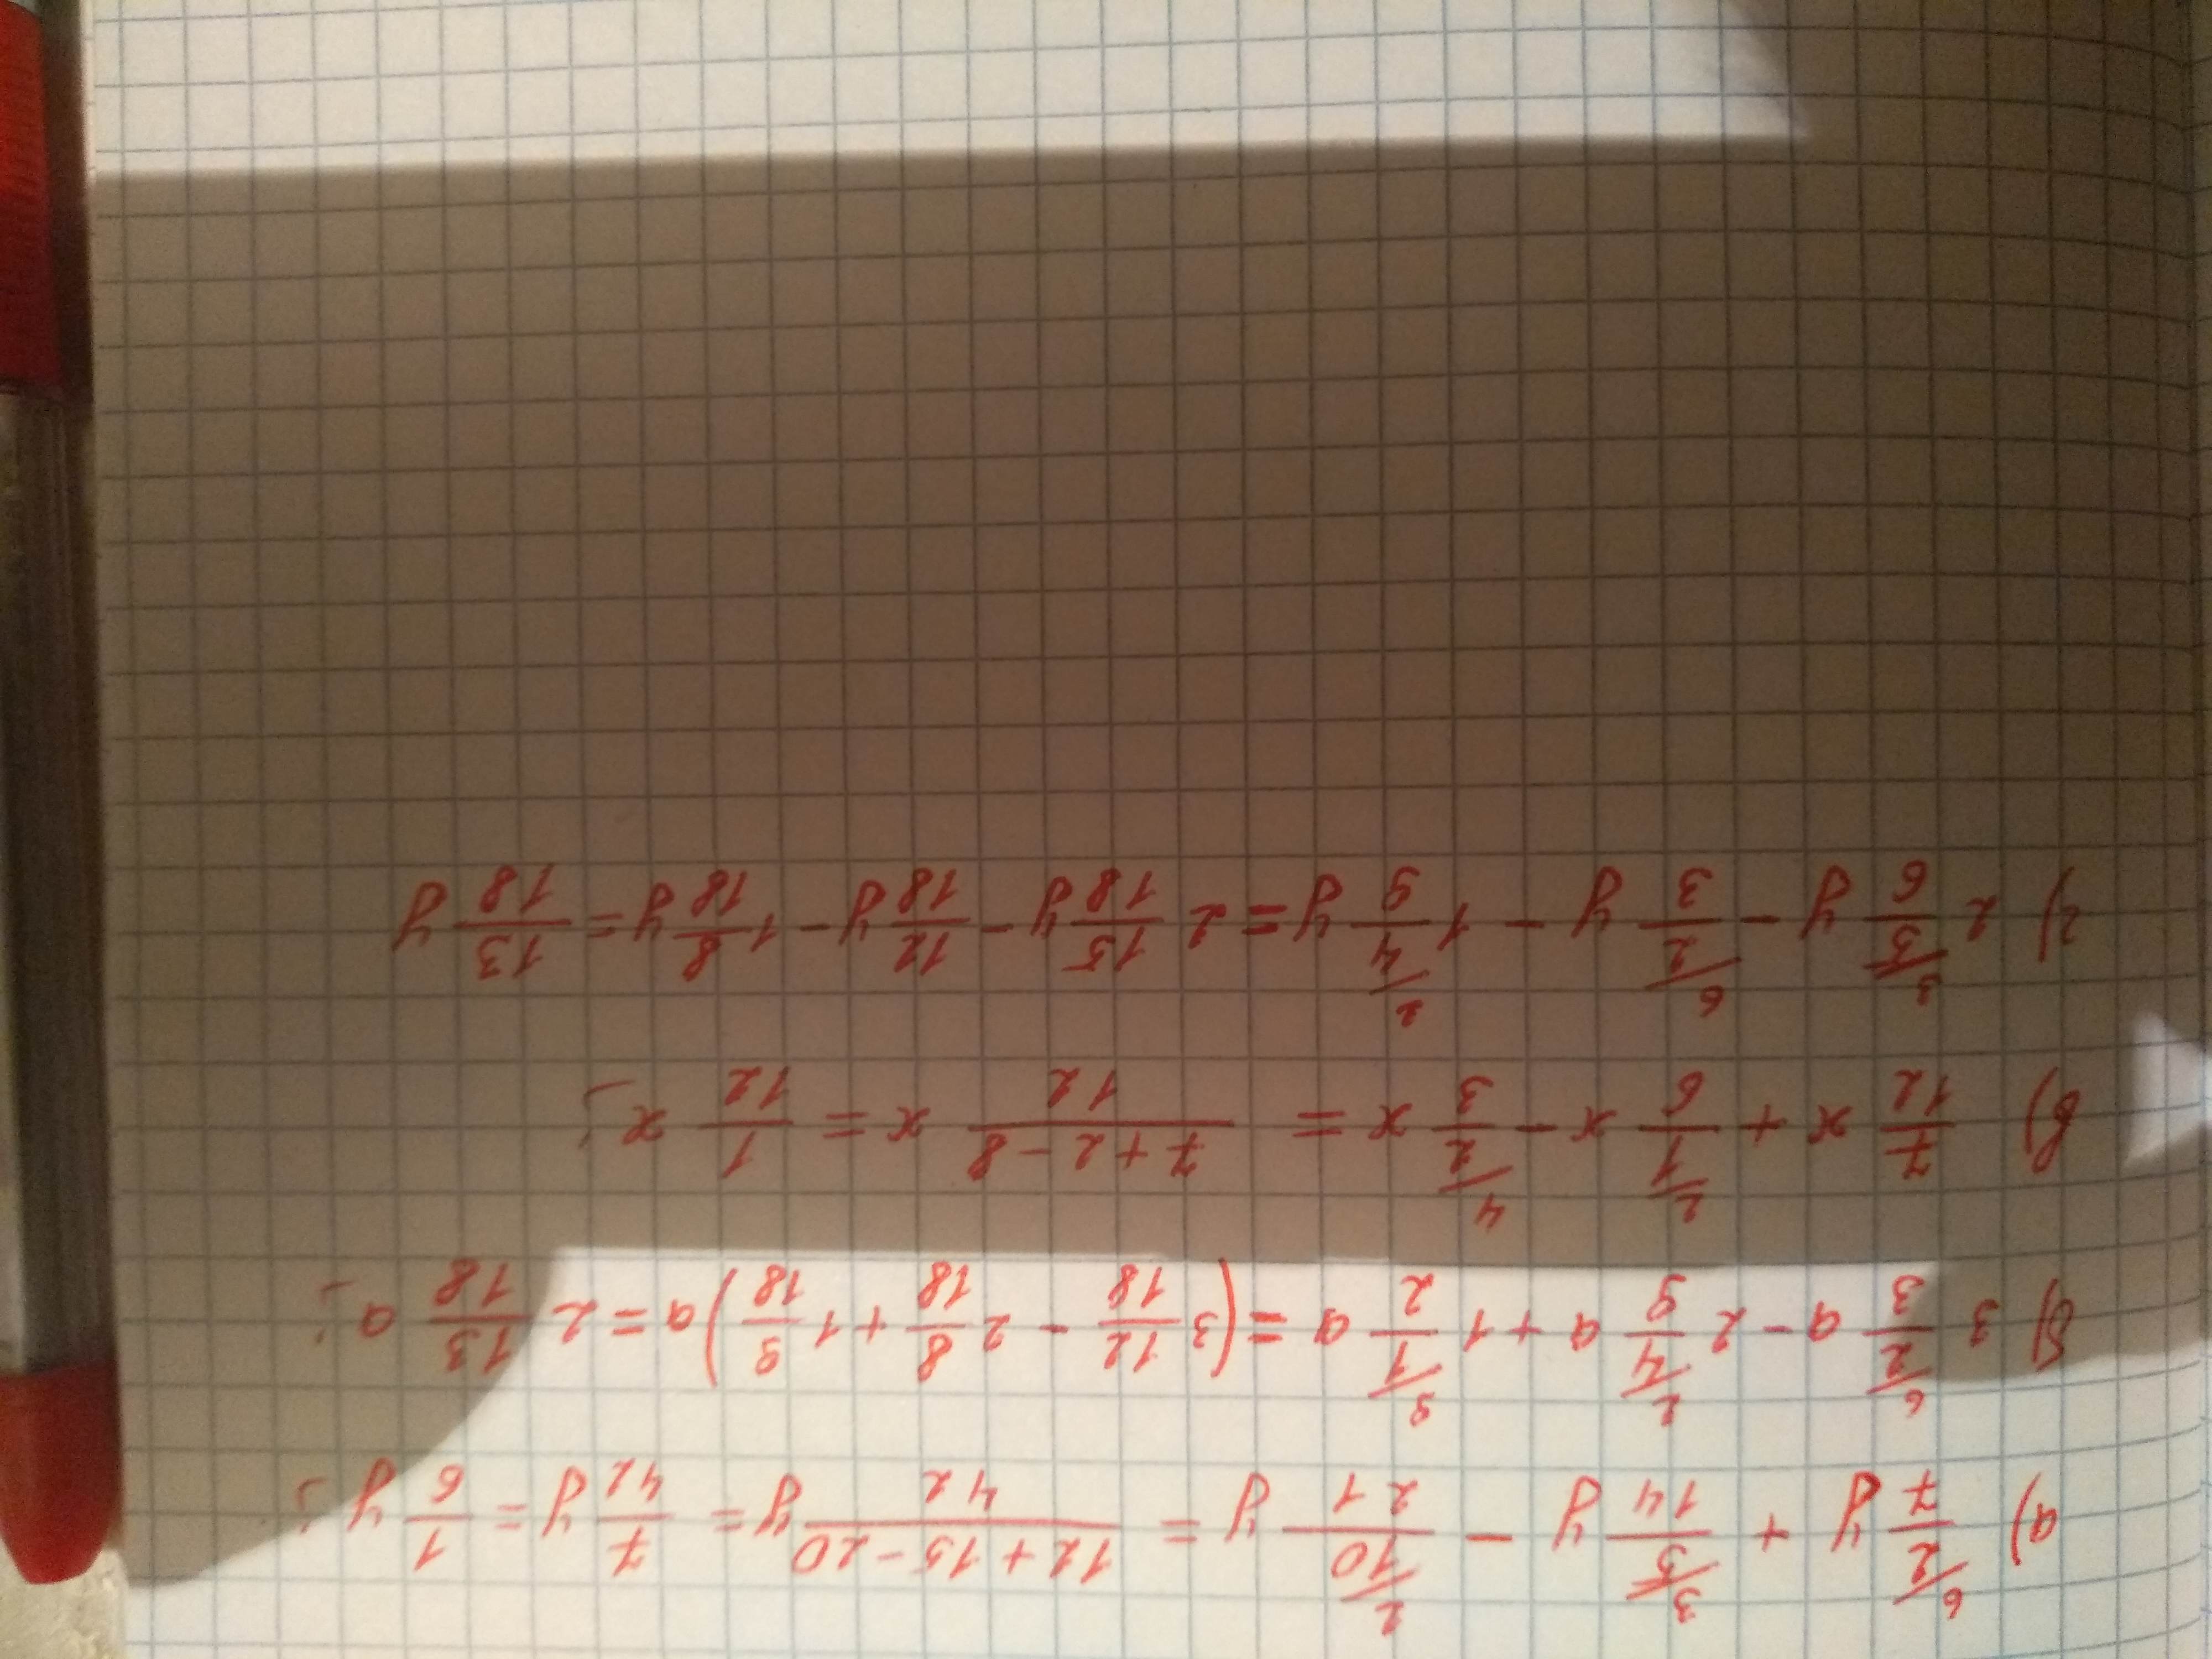 а) 2/7 y^6 + 5/14 y^3 − 10/21 y^2 = (12+15−20)/42 y = 7/42 y = 1/6 y;
б) 3 2/3 a^6 − 2 4/9 a^2 + 1 1/2 a^9 = (3 12/18 − 2 8/18 + 1 9/18)a = 2 13/18 a;
в) 7/12 x + 1/6 x^2 − 2/3 x^4 = (7+2−8)/12 x = 1/12 x;
г) 2 5/6 y^3 − 2/3 y^6 − 1 4/9 y^2 = 2 15/18 y − 12/18 y − 1 8/18 y = 13/18 y